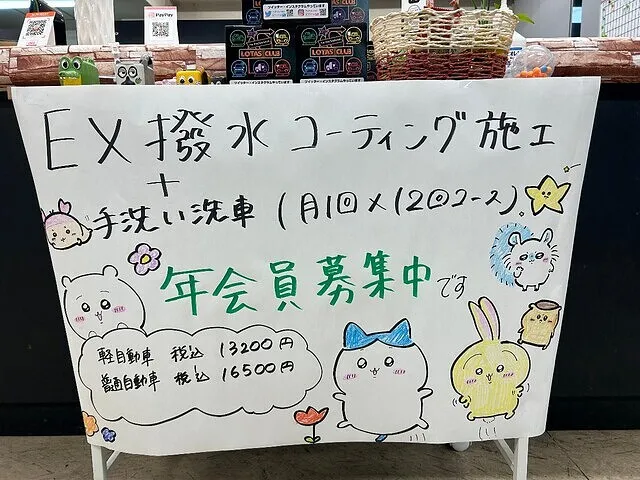 PayPay
LOTAS CLUB
LOTAS CLUB
EX撥水コーティング施工
+
手洗い洗車(月1回×12回コース)
年会員募集中です
軽自動車 税込 13200円
普通自動車 税込 16500円